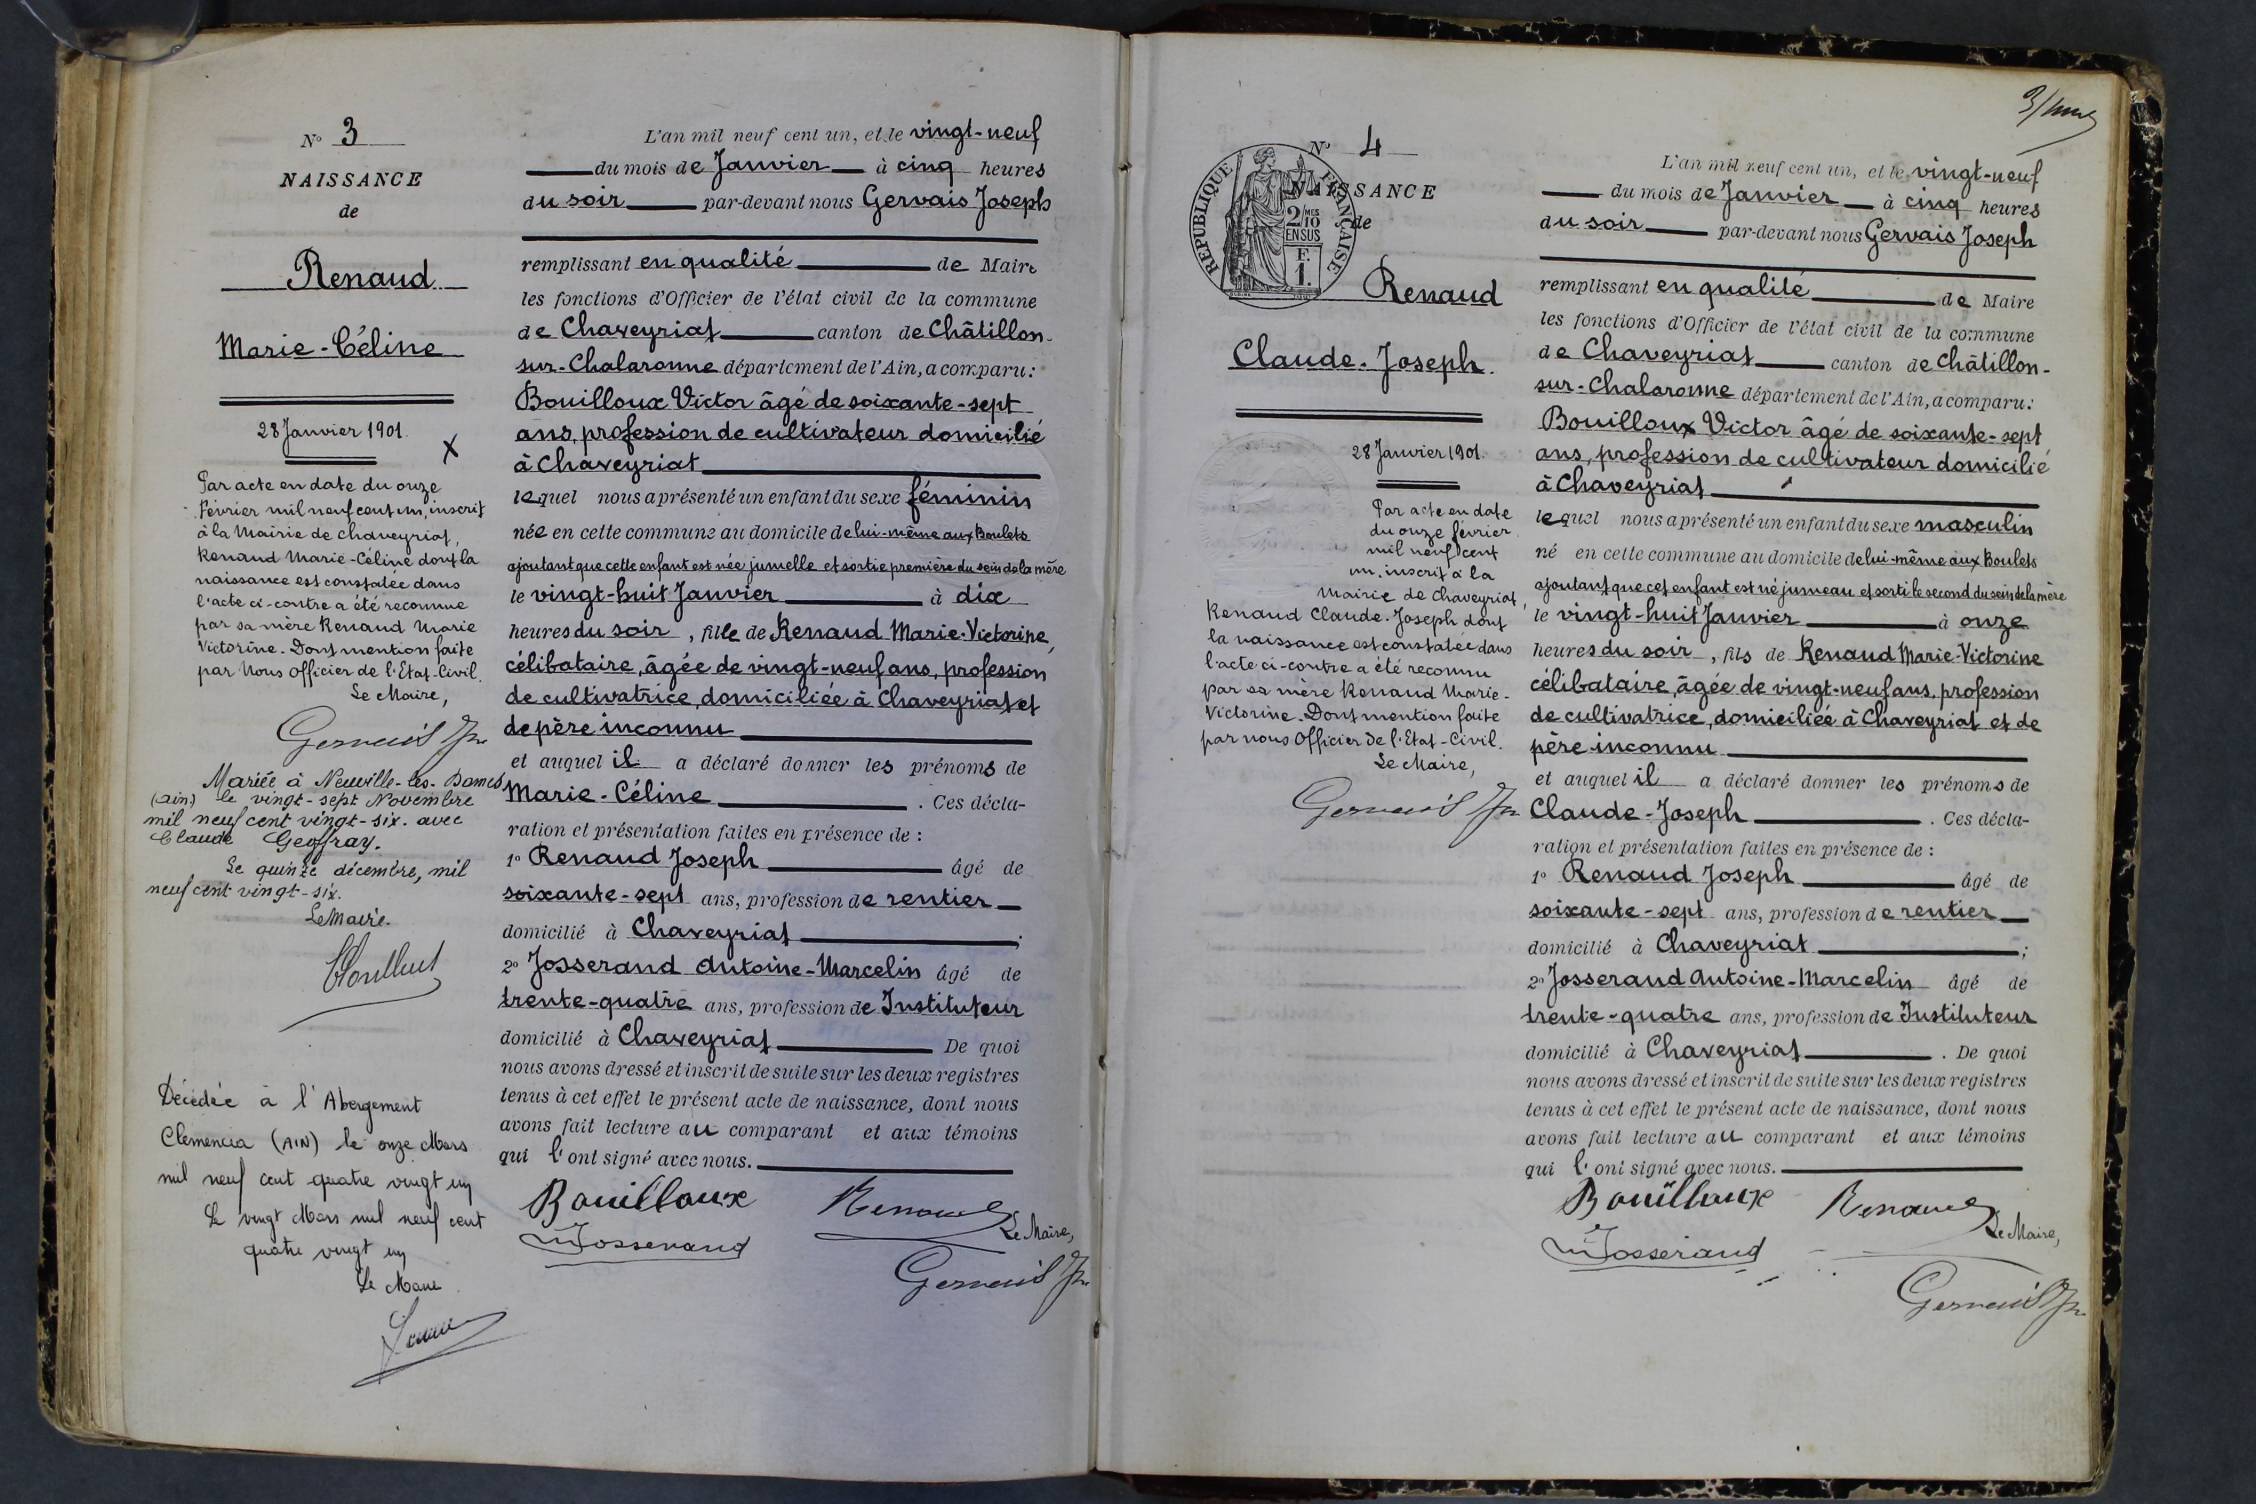 N° 3
NAISSANCE
de
Renaud
Marie-Céline
28 Janvier 1901.
X
Par acte en date du onze
Février mil neuf cent un, inscrit
à la Mairie de Chaveyriat,
Renaud Marie-Céline dont la
naissance est constatée dans
l'acte ci-contre a été reconnue
par sa mère Renaud Marie
Victorine. Dont mention faite
par Nous Officier de l'Etat-Civil.
Le Maire,
Gervais Jh
Mariée à Neuville-les-Dames
(Ain) le vingt-sept Novembre
mil neuf cent vingt-six. avec
Claude Geoffray.
Le quinze décembre, mil
neuf cent vingt-six.
Le Maire.
Décédée à l'Abergement
Clemencia (AIN) le onze Mars
mil neuf cent quatre vingt un
Le vingt Mars mil neuf cent
quatre vingt un
Le Maire
L'an mil neuf cent un, et le vingt-neuf
du mois de Janvier à cinq heures
du soir par-devant nous Gervais Joseph
remplissant en qualité de Maire
les fonctions d'Officier de l'état civil de la commune
de Chaveyriat canton de Châtillon-
sur-Chalaronne département de l'Ain, a comparu:
Bouilloux Victor âgé de soixante-sept
ans, profession de cultivateur domicilié
à Chaveyriat
lequel nous a présenté un enfant du sexe féminin
née en cette commune au domicile de lui-même aux Boulets
ajoutant que cette enfant est née jumelle et sortie première du sein de la mère
le vingt-huit Janvier à dix
heures du soir, fille de Renaud Marie-Victorine,
célibataire, âgée de vingt-neuf ans, profession
de cultivatrice, domiciliée à Chaveyriat et
de père inconnu
et auquel il a déclaré donner les prénoms de
Marie-Céline . Ces décla-
ration et présentation faites en présence de :
1° Renaud Joseph âgé de
soixante-sept ans, profession de rentier
domicilié à Chaveyriat ;
2° Josserand Antoine-Marcelin âgé de
trente-quatre ans, profession de Instituteur
domicilié à Chaveyriat De quoi
nous avons dressé et inscrit de suite sur les deux registres
tenus à cet effet le présent acte de naissance, dont nous
avons fait lecture au comparant et aux témoins
qui l'ont signé avec nous.
Bouilloux Renaud
Josserand Le Maire,
Gervais Jh
N° 4
NAISSANCE
de
RÉPUBLIQUE FRANÇAISE
2/10 MES
EN SUS
F.
1.
Renaud
Claude-Joseph.
28 Janvier 1901.
Par acte en date
du onze février
mil neuf cent
un, inscrit à la
Mairie de Chaveyriat,
Renaud Claude-Joseph dont
la naissance est constatée dans
l'acte ci-contre a été reconnu
par sa mère Renaud Marie-
Victorine. Dont mention faite
par nous Officier de l'Etat-Civil.
Le Maire,
Gervais Jh
L'an mil neuf cent un, et le vingt-neuf
du mois de Janvier à cinq heures
du soir par-devant nous Gervais Joseph
remplissant en qualité de Maire
les fonctions d'Officier de l'état civil de la commune
de Chaveyriat canton de Châtillon-
sur-Chalaronne département de l'Ain, a comparu:
Bouilloux Victor âgé de soixante-sept
ans, profession de cultivateur domicilié
à Chaveyriat
lequel nous a présenté un enfant du sexe masculin
né en cette commune au domicile de lui-même aux Boulets
ajoutant que cet enfant est né jumeau et sorti le second du sein de la mère
le vingt-huit Janvier à onze
heures du soir, fils de Renaud Marie-Victorine
célibataire, âgée de vingt-neuf ans, profession
de cultivatrice, domiciliée à Chaveyriat et de
père inconnu
et auquel il a déclaré donner les prénoms de
Claude-Joseph . Ces décla-
ration et présentation faites en présence de :
1° Renaud Joseph âgé de
soixante-sept ans, profession de rentier
domicilié à Chaveyriat ;
2° Josserand Antoine-Marcelin âgé de
trente-quatre ans, profession de Instituteur
domicilié à Chaveyriat . De quoi
nous avons dressé et inscrit de suite sur les deux registres
tenus à cet effet le présent acte de naissance, dont nous
avons fait lecture au comparant et aux témoins
qui l'ont signé avec nous.
Bouilloux Renaud
Josserand Le Maire,
Gervais Jh